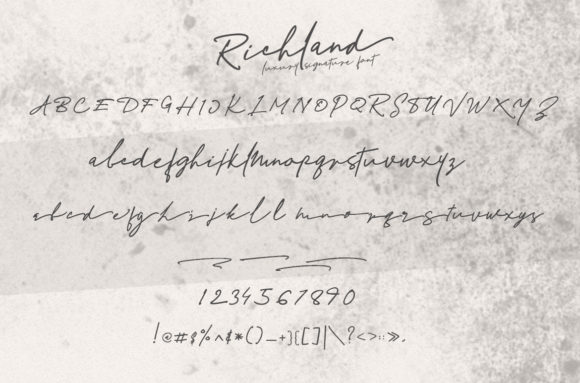 Richland
luxury signature font
ABCDEFGHIJKLMNOPQRSTUVWXYZ
abcdefghijklmnopqrstuvwxyz
abcdefghijkll mnopqrstuvwxyz
1234567890
!@#$%^&*()_+}{[]|\?<>::».